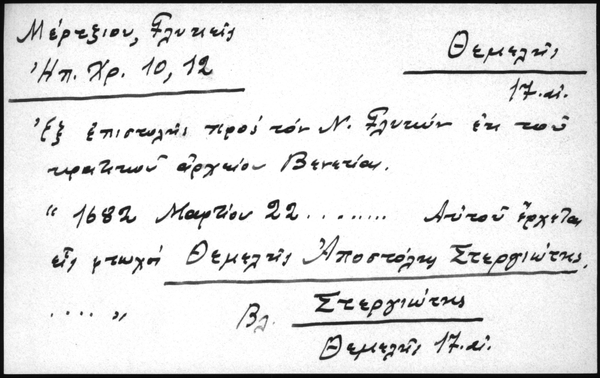 Μέρτζιου, Γλυκεῖς
Ἠπ. Χρ. 10, 12
Θεμελῆς
17. αἰ.
Ἐξ ἐπιστολῆς πρός τόν Ν. Γλυκύν ἐκ τοῦ
κρατικοῦ ἀρχείου Βενετίας.
" 1682 Μαρτίου 22 ........ Αὐτοῦ ἔρχεται
εἷς πτωχός Θεμελῆς Ἀποστόλης Στεργιώτης,
.... "
Βλ. Στεργιώτης
Θεμελῆς 17. αἰ.